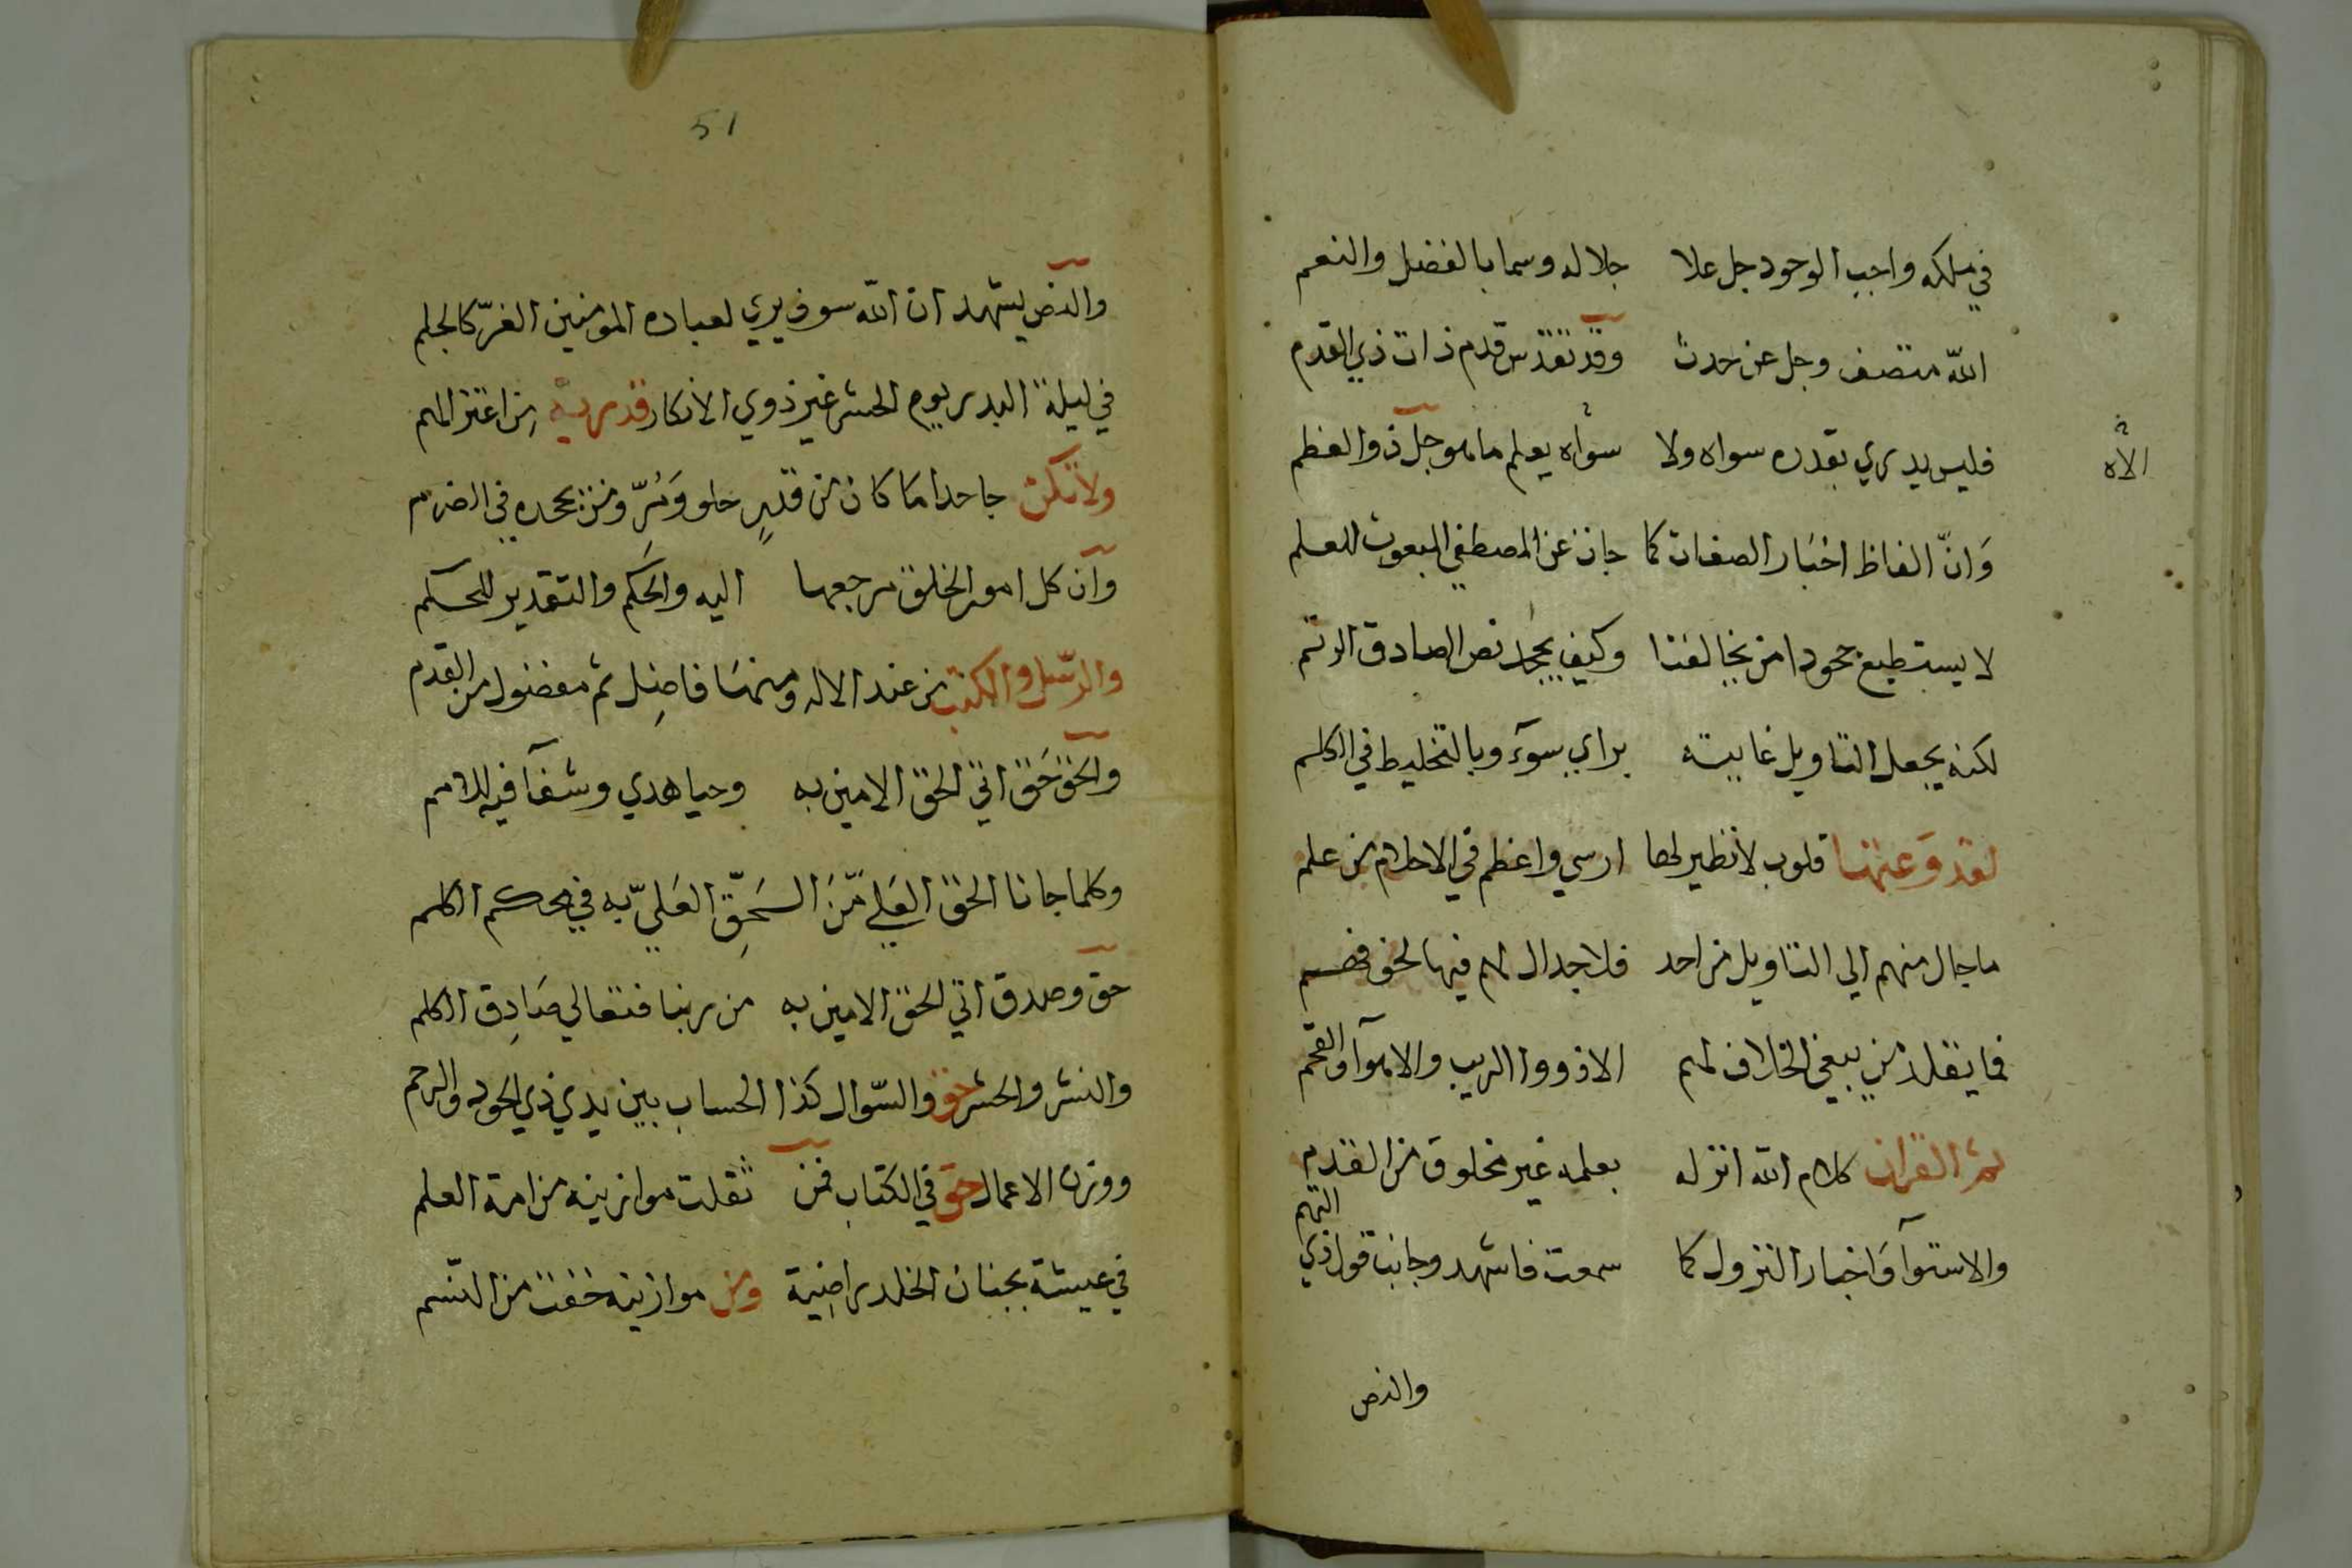 في ملكه واجب الوجود جل علا جلاله وسما بالفضل والنعم
الله متصف وجل عن حدث وقد تقدس قدم ذات ذي القدم
فليس يدري بقدره سواه ولا سواه يعلم ما هو جل ذو العظم
الاه
وَانّ الفاظ اخبَار الصفات كما جات عن المصطفي المبعوث للعلم
لا يستطيع جحودا من يخالفنا وكيف يجحد نص الصادق الرتم
لكنه يجعل التاويل غايته براي سوٓء وبالتخليط في الكلم
لقد وَعتها قلوب لا نظير لها ارسي واعظم في الاحلام من علم
ما جال منهم الي التاويل من احد فلا جدال لهم فيها لحق فهم
فما يقلد من يبغي الخلاف لهم الا ذووا الريب والاهوآ والقحم
ثم القران كلام الله انزله بعلمه غير مخلوق من القدم
والاستوآ وَاخبار النزول كما سمعت فاشهد وجانب قول ذي التهم
والنص
51
والنص يشهد ان الله سوف يري لعباده المومنين الغرّ كالجلم
في ليلة البدر يوم الحشر غير ذوي الانكار قدريه من اعتزالهم
ولا تكن جاحدا مَا كان من قدرٍ حلو وَمُرّ ومن يجحده في الضرم
وان كل امور الخلق مرجعها اليه والحَكم والتقدير للحكم
والرّسل والكتب من عند الاله ومنهَا فاضِل ثم مفضول من القدم
والحق حَق اتي الحق الامين به وحيا هدي وشفآ فيه للامم
وكلما جانا الحق العَلي مّنَ السَحِقّ العَليّ به في محكم الكلم
حق وصدق اتي الحق الامين به من ربنا فتعالي صَادِق الكلم
والنشر والحشر حق والسّوال كذا الحساب بين يدي ذي الجود والرحم
ووزن الاعمال حق في الكتاب فمن ثقلت موازينه من امة العلم
في عيشة بجنان الخلد راضِية ومن موازينه خفت من النّسم